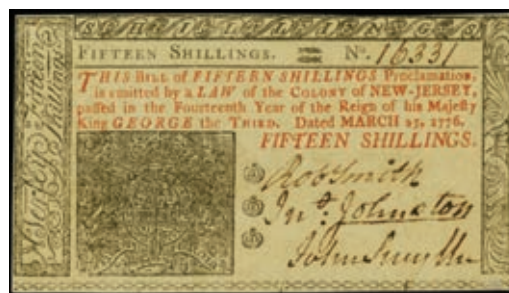 FIFTEEN SHILLINGS. No. 16331
THIS BILL of FIFTEEN SHILLINGS Proclamation,
is emitted by a LAW of the COLONY of NEW-JERSEY,
paſſed in the Fourteenth Year of the Reign of his Majeſty
King GEORGE the THIRD. Dated MARCH 25, 1776.
FIFTEEN SHILLINGS.
Rob Smith
Jno. Johnston
John Smyth
Fifteen Shillings
New Jerſey